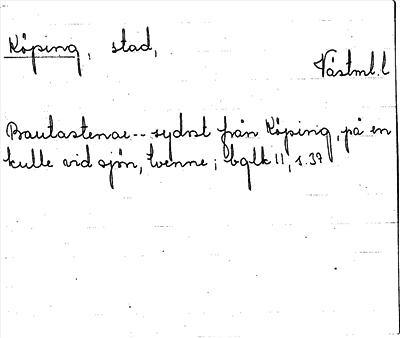 Köping, stad,
Västml. l
Bautastenar -- sydost från Köping, på en
kulle vid sjön, tvenne; bqlk II, s. 37